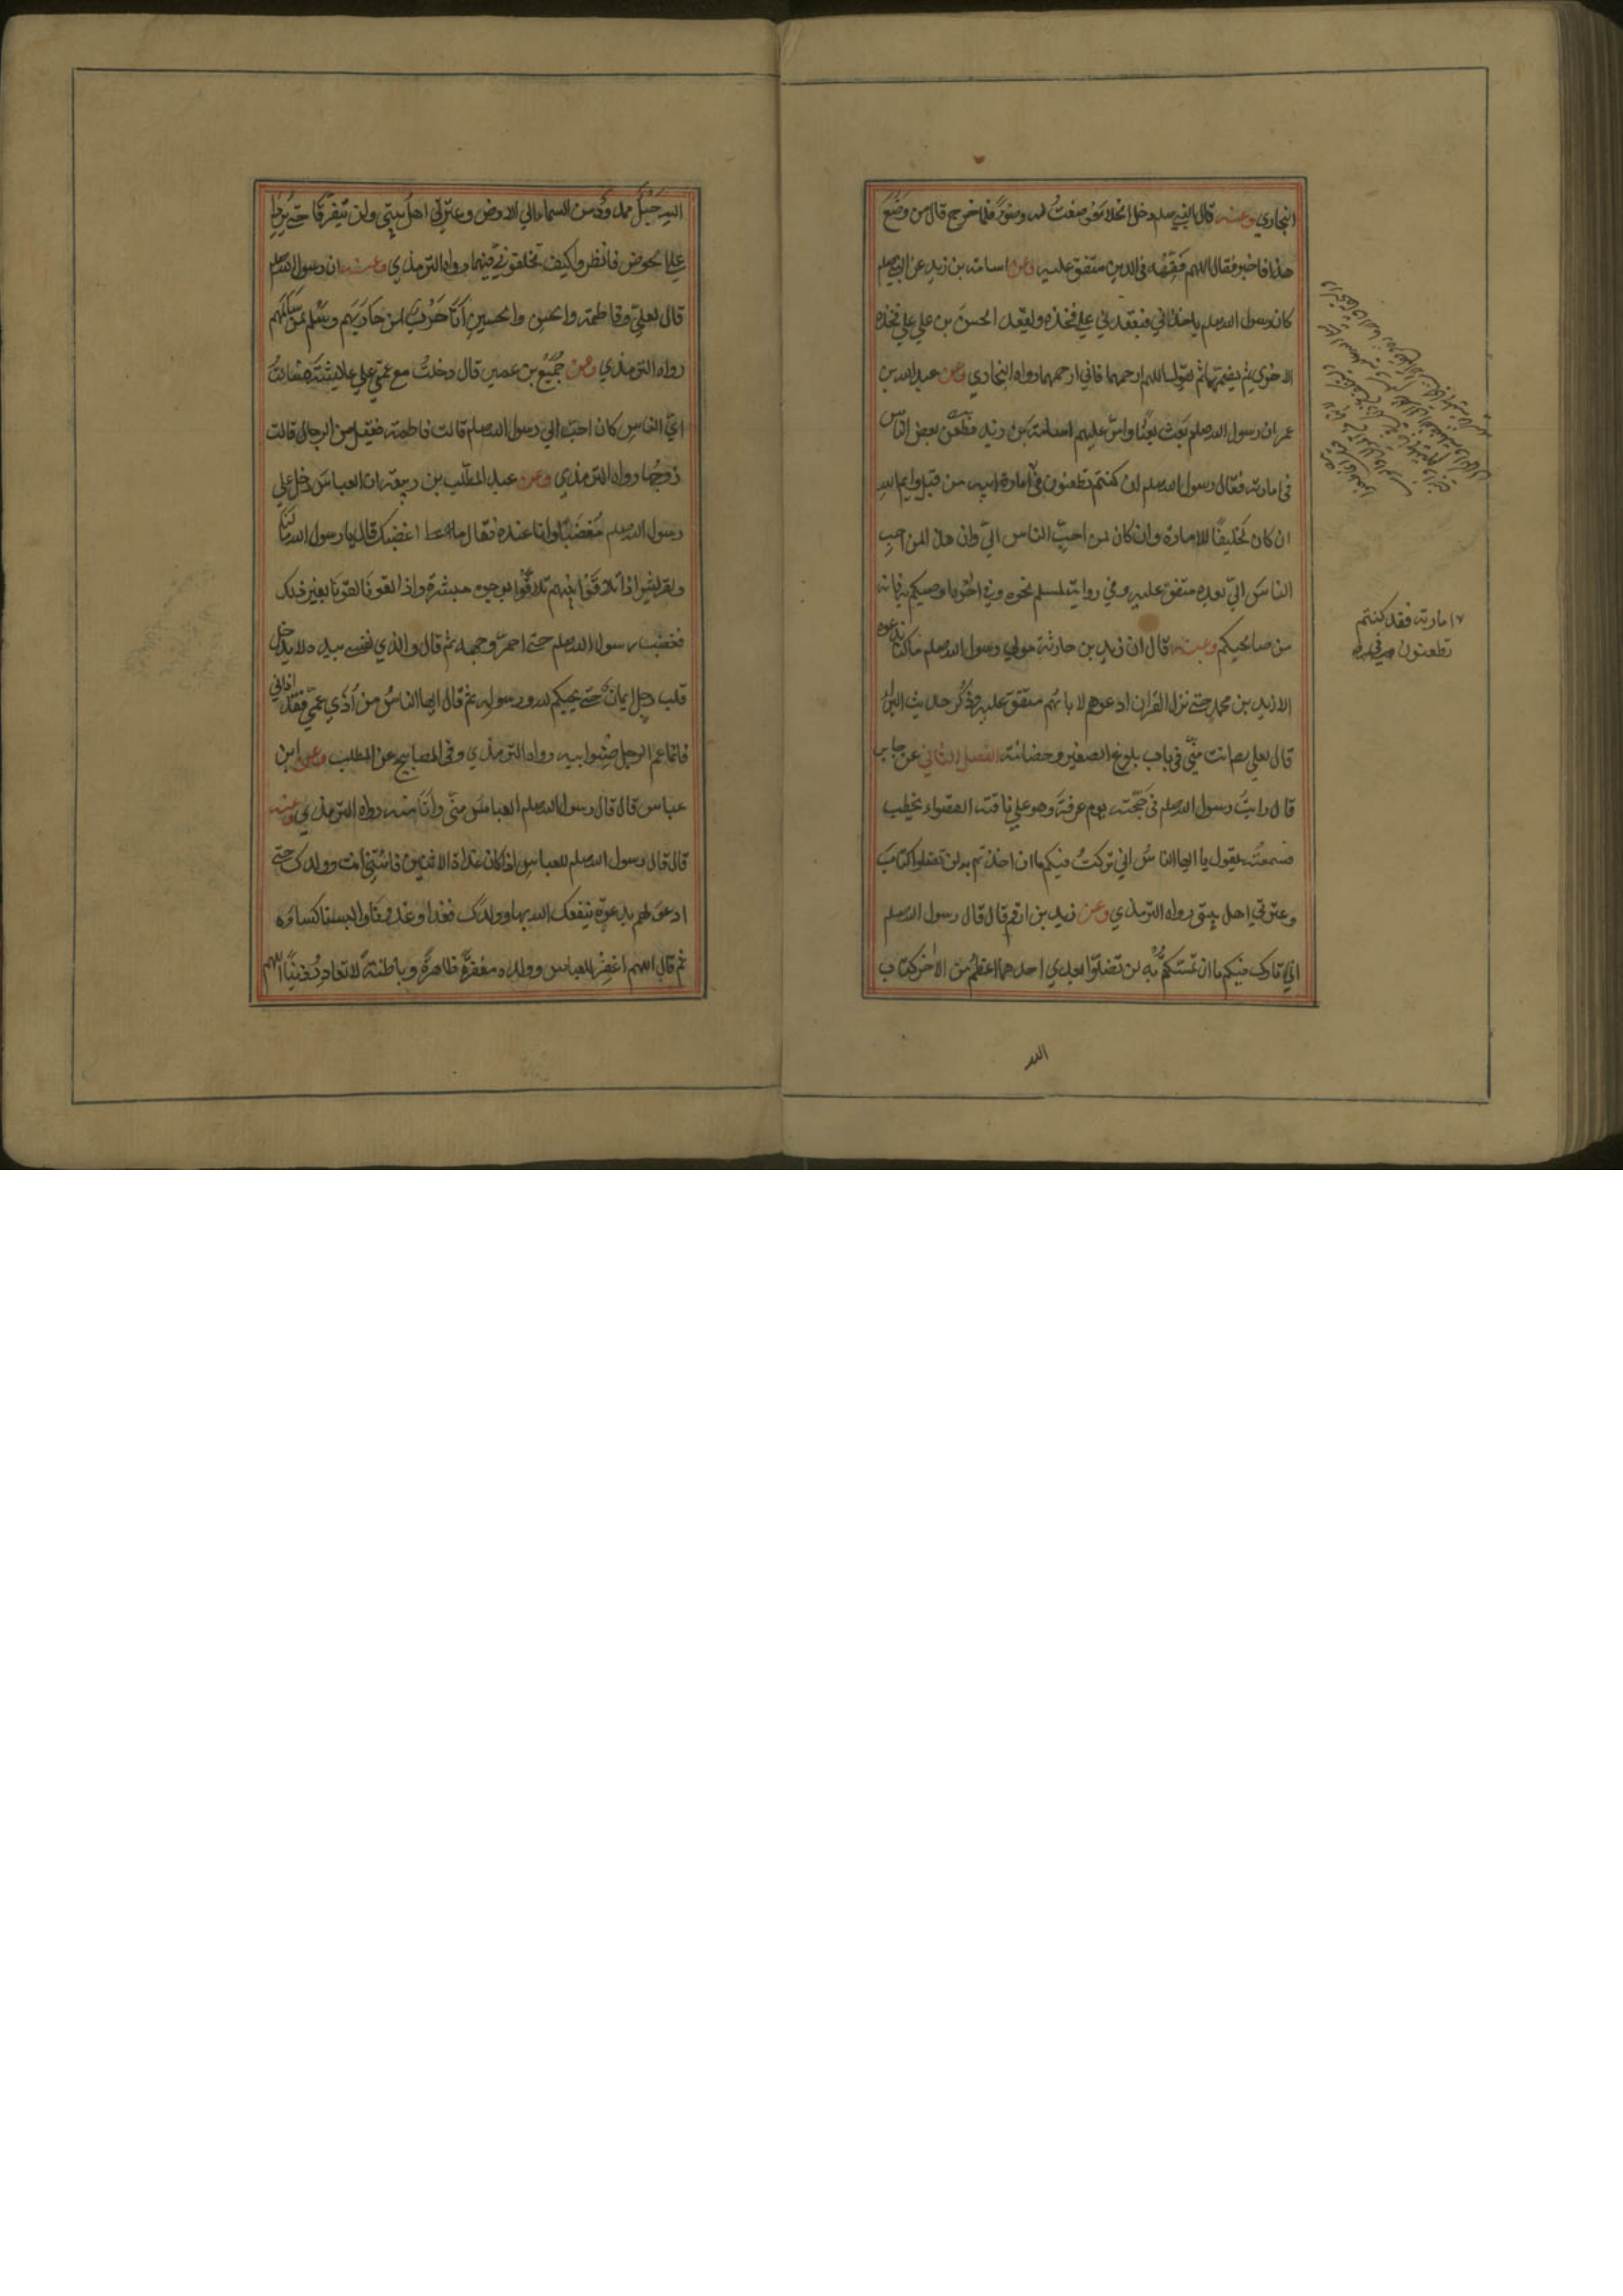 البخاري وعنه قال ان النبي صلعم دخل الخلاء فوضعتُ له وضوءً فلما خرج قال من وضع
هذا فاخبر فقال اللهم فقّهه في الدين متفق عليه وعن اسامة بن زيد عن النبي صلعم
كان رسول الله صلعم ياخذني فيقعدني علي فخذه ويقعد الحسن بن علي علي فخذه
الاخري ثم يضمهما ثم يقول اللهم ارحمهما فاني ارحمهما رواه البخاري وعن عبد الله بن
عمر ان رسول الله صلعم بعث بعثًا وامّر عليهم اسامة بن زيد فطعن بعض الناس
في امارته فقال رسول الله صلعم ان كنتم تطعنون في امارة ابيه من قبل وايم الله
ان كان لخليقًا للامارة وان كان لمن احبّ الناس اليّ وان هذا لمن احب
الناس اليّ بعده متفق عليه وفي رواية لمسلم نحوه وفي اخره اوصيكم به فانه
من صالحيكم وعنه قال ان زيد بن حارثة مولي رسول الله صلعم ما كنا ندعوه
الا زيد بن محمد حتي نزل القران ادعوهم لابائهم متفق عليه وذُكر حديث البراء
قال لعلي انت منّي في باب بلوغ الصغير وحضانته الفصل الثاني عن جابر
قال رايتُ رسول الله صلعم في حجته يوم عرفة وهو علي ناقته القصواء يخطب
فسمعته يقول يا ايها الناسُ اني تركتُ فيكم ما ان اخذتم به لن تضلوا كتاب
وعترتي اهل بيتي رواه الترمذي وعن زيد بن ارقم قال قال رسول الله صلعم
اني تارك فيكم ما ان تمسّكتم به لن تضلّوا بعدي احدهما اعظمُ من الاخر كتاب
الله
امارته فقد كنتم
تطعنون في
الله حبلٌ ممدودٌ من السماء الي الارض وعترتي اهل بيتي ولن يتفرقا حتي يردا
علي الحوض فانظروا كيف تخلفوني فيهما رواه الترمذي وعنه ان رسول الله صلعم
قال لعليّ وفاطمة والحسن والحسين انا حربٌ لمن حاربهم وسلم لمن سالمهم
رواه الترمذي وعن جُمَيع بن عمير قال دخلتُ مع عمتي علي عائشة فسالتُ
ايّ الناس كان احبّ الي رسول الله صلعم قالت فاطمة فقيل من الرجال قالت
زوجُها رواه الترمذي وعن عبد المطّلب بن ربيعة ان العباس دخل علي
رسول الله صلعم مُغضَبًا وانا عنده فقال ما اغضبك قال يا رسول الله ما لنا
ولقريش اذا تلاقَوا بينهم تلاقَوا بوجوه مبشرة واذا لقونا لقونا بغير ذلك
فغضب رسول الله صلعم حتي احمرّ وجهه ثم قال والذي نفسي بيده لا يدخل
قلب رجل ايمانٌ حتي يحبكم لله ورسوله ثم قال ايها الناسُ من اذي عمّي فقد اذاني
فانما عم الرجل صِنوُ ابيه رواه الترمذي وفي المصابيح عن المطلب وعن ابن
عباس قال قال رسول الله صلعم العباس منّي وانا منه رواه الترمذي وعنه
قال قال رسول الله صلعم للعباس اذا كان غداة الاثنين فاتني انت وولدك حتي
ادعو لهم بدعوة ينفعك الله بها وولدك فغدا وغدونا والبسنا كساءه
ثم قال اللهم اغفر للعباس وولده مغفرةً ظاهرةً وباطنةً لا تغادر ذنبًا اللهم